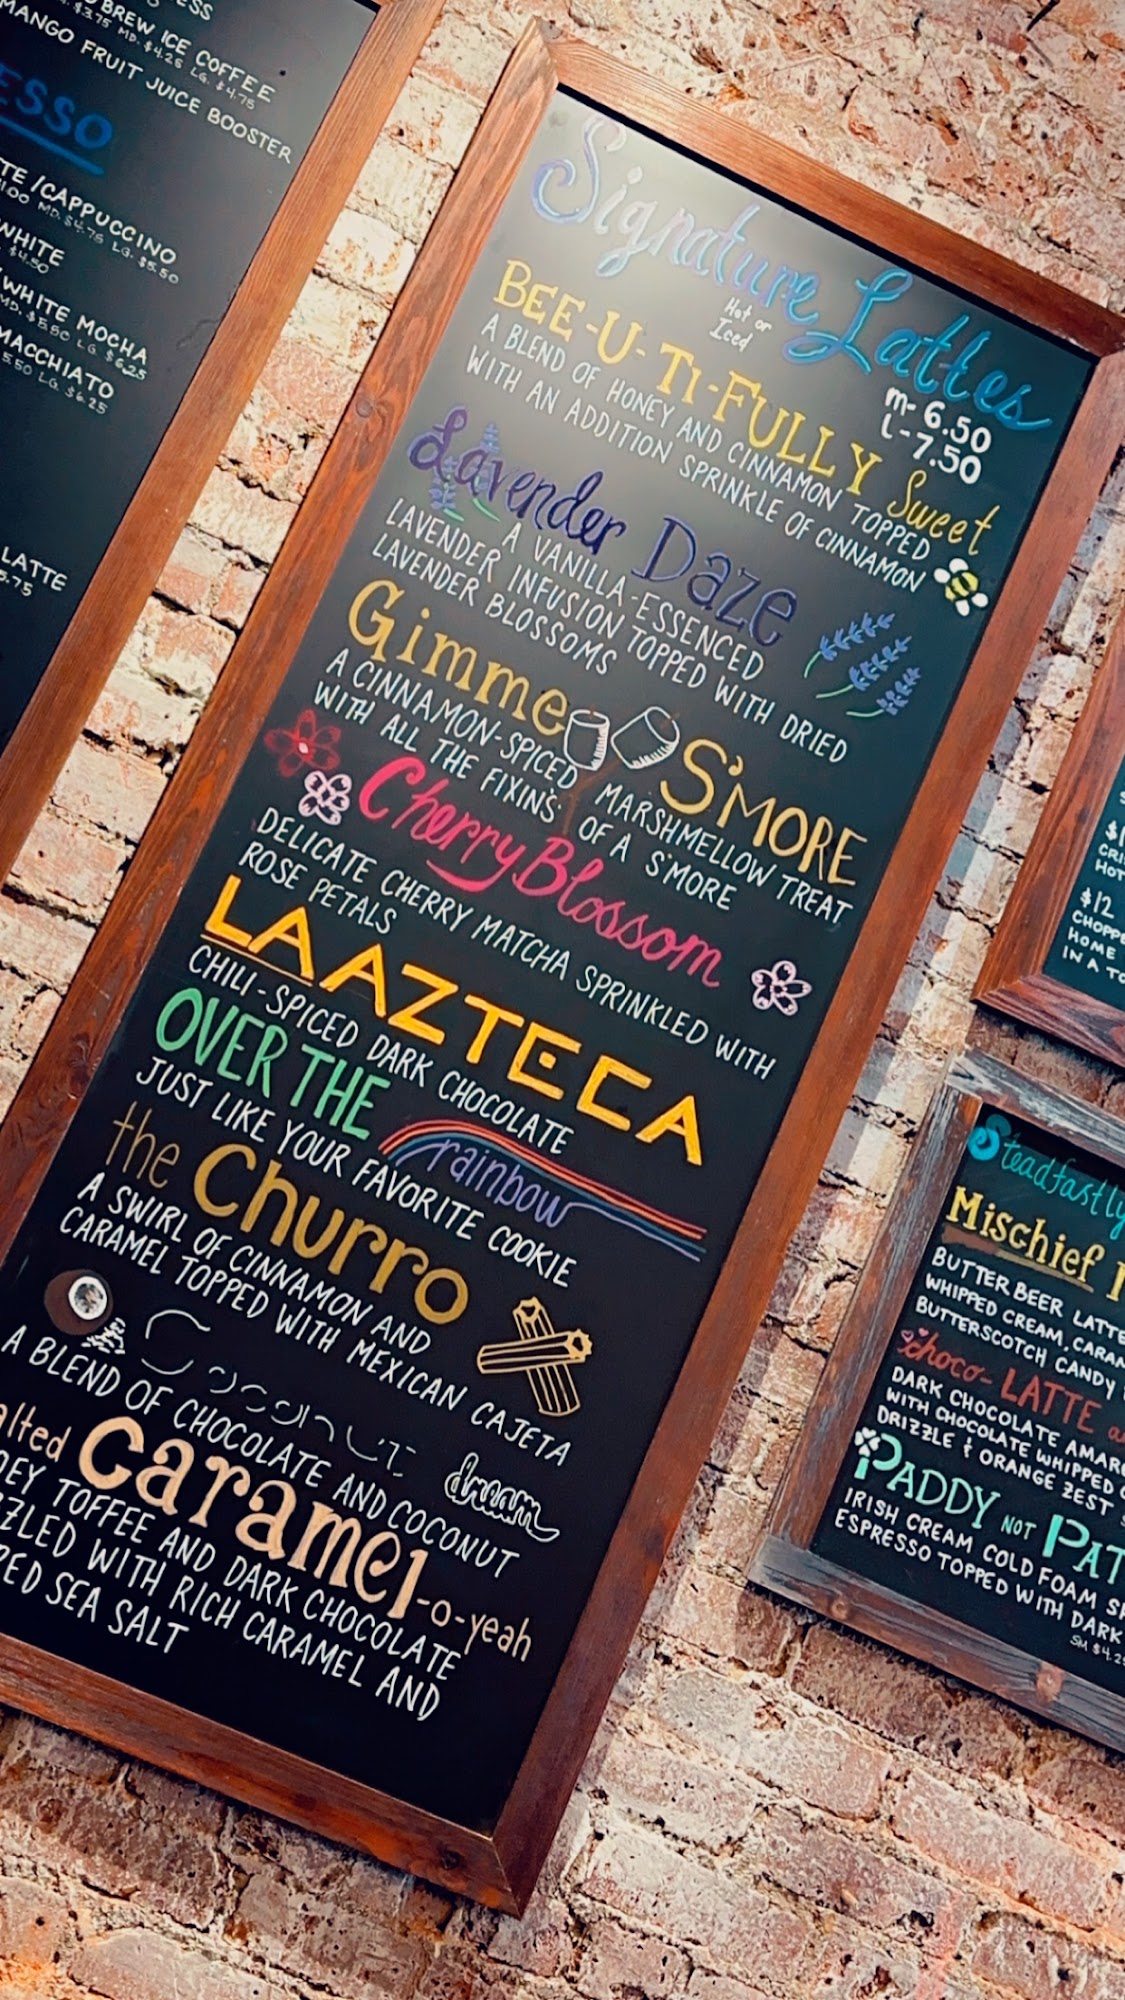 ESS
BREW ICE COFFEE
$3.75 MD. $4.25 LG. $4.75
MANGO FRUIT JUICE BOOSTER
ESSO
TE/CAPPUCCINO
MD. $4.75 LG. $5.50
WHITE
$4.50
/WHITE MOCHA
MD. $5.50 LG. $6.25
MACCHIATO
5.50 LG. $6.25
LATTE
5.75
Signature Lattes
Hot or
Iced
m- 6.50
l- 7.50
BEE-U-Ti-FULLY Sweet
A BLEND OF HONEY AND CINNAMON TOPPED
WITH AN ADDITION SPRINKLE OF CINNAMON
Lavender Daze
A VANILLA-ESSENCED
LAVENDER INFUSION TOPPED WITH DRIED
LAVENDER BLOSSOMS
Gimme S'MORE
A CINNAMON-SPICED MARSHMELLOW TREAT
WITH ALL THE FIXINS' OF A S'MORE
Cherry Blossom
DELICATE CHERRY MATCHA SPRINKLED WITH
ROSE PETALS
LA AZTECA
CHILI-SPICED DARK CHOCOLATE
OVER THE rainbow
JUST LIKE YOUR FAVORITE COOKIE
the Churro
A SWIRL OF CINNAMON AND
CARAMEL TOPPED WITH MEXICAN CAJETA
Coconut dream
A BLEND OF CHOCOLATE AND COCONUT
alted Caramel-o-yeah
OEY TOFFEE AND DARK CHOCOLATE
ZZLED WITH RICH CARAMEL AND
RED SEA SALT
$1
CRIS
HOT
$12
CHOPPE
HOME
IN A TO
Steadfastly
Mischief
BUTTER BEER LATTE
WHIPPED CREAM, CARAM
BUTTERSCOTCH CANDY
choco-LATTE a
DARK CHOCOLATE AMAR
WITH CHOCOLATE WHIPPED
DRIZZLE & ORANGE ZEST
PADDY NOT PAT
IRISH CREAM COLD FOAM S
ESPRESSO TOPPED WITH DARK
SM $4.25